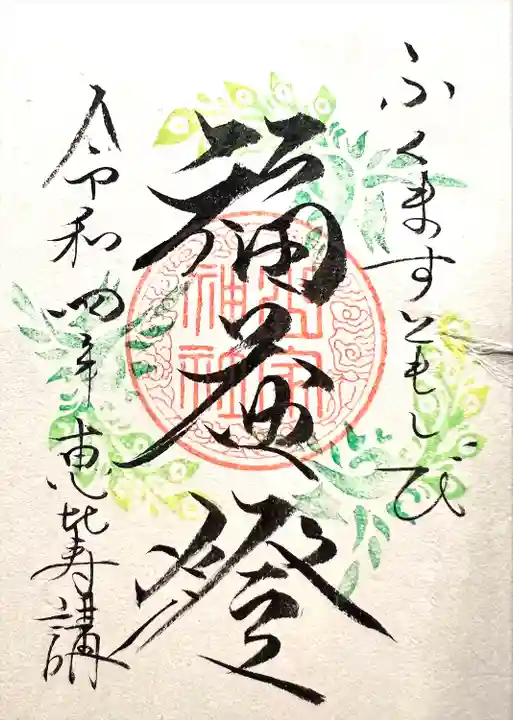 ふくますともしび
福益燈
令和四年恵比寿講
神社